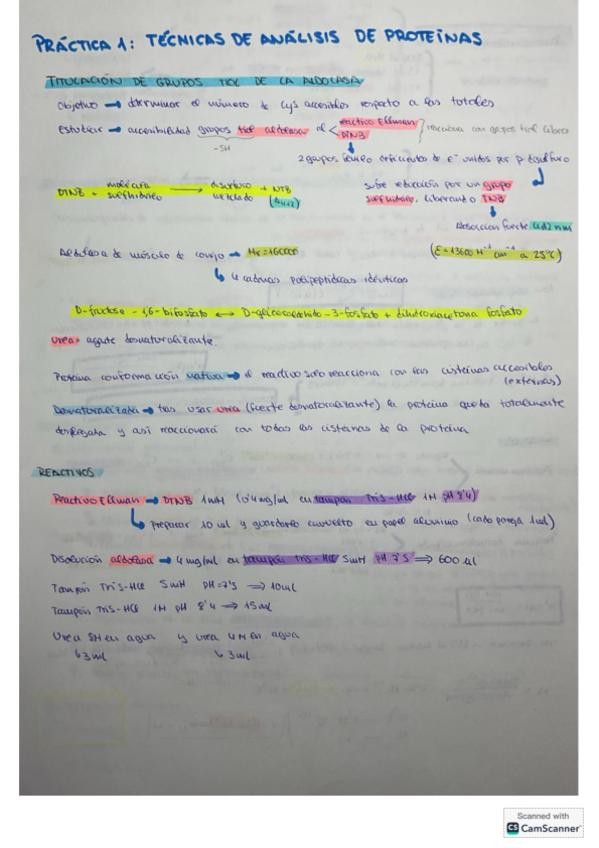 PRÁCTICA 1: TÉCNICAS DE ANÁLISIS DE PROTEÍNAS
TITULACIÓN DE GRUPOS TIOL DE LA ALDOLASA
Objetivo → determinar el número de cys accesibles respecto a las totales
Estudiar → accesibilidad grupos tiol aldolasa al reactivo Ellman DTNB reacciona con grupos tiol libres
-SH
2 grupos deficientes de e⁻ unidos por p disulfuro
DTNB + molécula sulfhidrilo → disulfuro mezclado + NTB (λ412)
sufre reducción por un grupo sulfhidrilo, liberando TNB
Absorción fuerte 412 nm
Aldolasa de músculo de conejo → Mr = 160000 (E = 13600 M⁻¹ cm⁻¹ a 25ºC)
↳ 4 cadenas polipeptídicas idénticas
D-fructosa - 1,6-bifosfato ↔ D-gliceraldehído-3-fosfato + dihidroxiacetona fosfato
Urea → agente desnaturalizante.
Proteína conformación nativa → el reactivo solo reacciona con las cisteínas accesibles (externas)
Desnaturalizada → tras usar urea (fuerte desnaturalizante) la proteína queda totalmente
desplegada y así reaccionará con todas las cisteínas de la proteína
REACTIVOS
Reactivo Ellman → DTNB 1mM (0'4 mg/ml en tampón Tris-HCl 1M pH 8'4)
↳ preparar 10 ml y guardarlo envuelto en papel aluminio (cada pareja 1ml)
Disolución aldolasa → 4 mg/ml en tampón Tris-HCl 5mM pH 7'5 ⇒ 600 µl
Tampón Tris-HCl 5mM pH=7'5 ⇒ 10ml
Tampón Tris-HCl 1M pH 8'4 → 15ml
Urea 8M en agua y urea 4M en agua
↳ 3ml ↳ 3ml
Scanned with
CS CamScanner